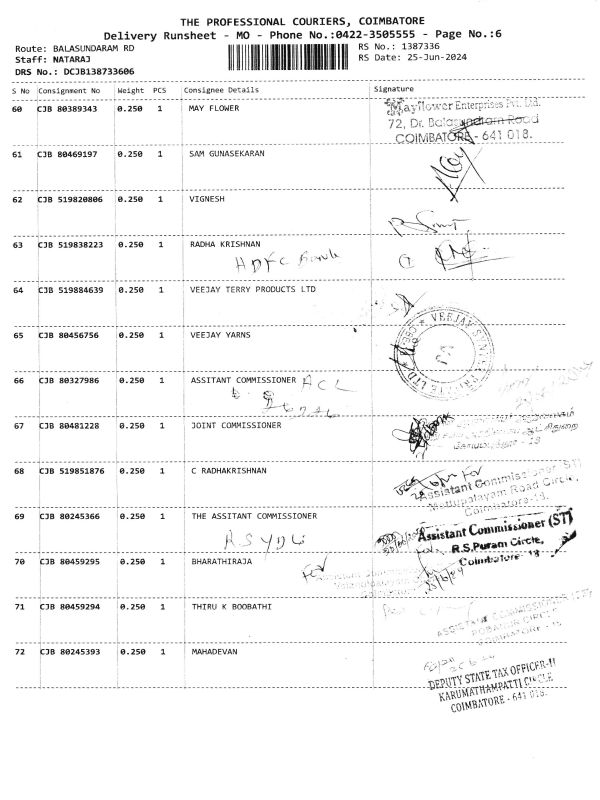 THE PROFESSIONAL COURIERS, COIMBATORE
Delivery Runsheet - MO - Phone No.:0422-3505555 - Page No.:6
Route: BALASUNDARAM RD
RS No.: 1387336
Staff: NATARAJ
RS Date: 25-Jun-2024
DRS No.: DCJB138733606
S No Consignment No Weight PCS Consignee Details Signature
60 CJB 80389343 0.250 1 MAY FLOWER
Mayflower Enterprises Pvt. Ltd.
72, Dr. Balasundram Road
COIMBATORE - 641 018.
61 CJB 80469197 0.250 1 SAM GUNASEKARAN
62 CJB 519820806 0.250 1 VIGNESH
63 CJB 519838223 0.250 1 RADHA KRISHNAN
HDFC Bank
64 CJB 519884639 0.250 1 VEEJAY TERRY PRODUCTS LTD
65 CJB 80456756 0.250 1 VEEJAY YARNS
66 CJB 80327986 0.250 1 ASSITANT COMMISSIONER ACL
67 CJB 80481228 0.250 1 JOINT COMMISSIONER
68 CJB 519851876 0.250 1 C RADHAKRISHNAN
Assistant Commissioner (ST)
Mettupalayam Road Circle,
Coimbatore-18.
69 CJB 80245366 0.250 1 THE ASSITANT COMMISSIONER
Assistant Commissioner (ST)
R.S.Puram Circle,
Coimbatore- 18
70 CJB 80459295 0.250 1 BHARATHIRAJA
71 CJB 80459294 0.250 1 THIRU K BOOBATHI
ASSISTANT COMMISSIONER (ST)
72 CJB 80245393 0.250 1 MAHADEVAN
DEPUTY STATE TAX OFFICER-II
KARUMATHAMPATTI CIRCLE
COIMBATORE - 641 018.